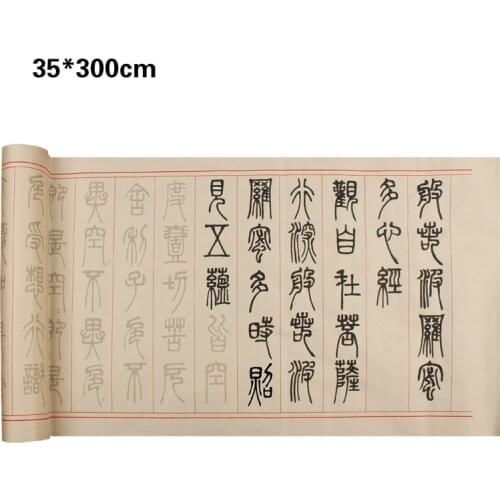 35*300cm
般若波羅蜜
多心經
觀自在菩薩
行深般若波
羅蜜多時照
見五蘊皆空
度壹切苦厄
舍利子色不
異空不異色
即是空即是
色受想行識